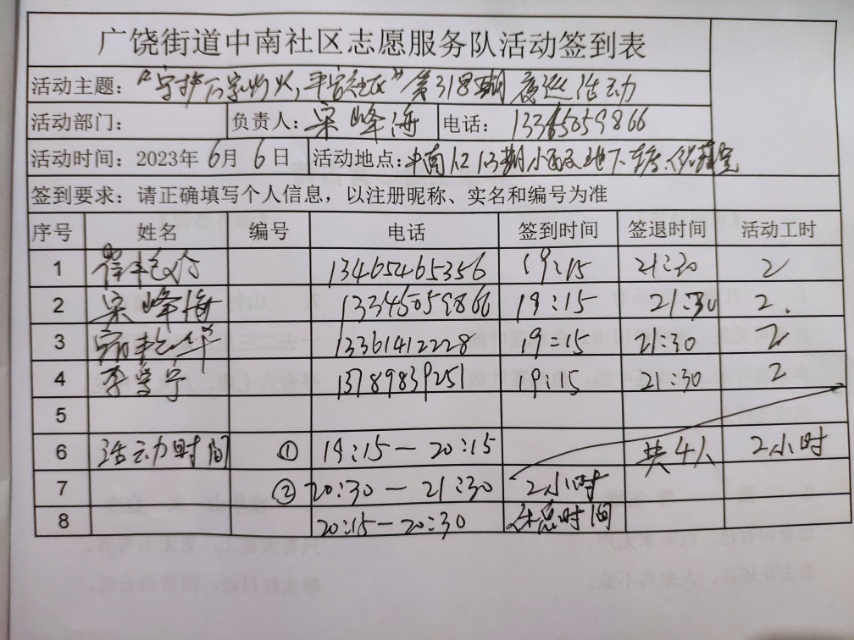 广饶街道中南社区志愿服务队活动签到表
活动主题：“守护万家灯火，平安社区”第318期夜巡活动
活动部门： 负责人：宋峰海 电话：13345059866
活动时间：2023年6月6日 活动地点：中南1213期小区及地下车库
签到要求：请正确填写个人信息，以注册昵称、实名和编号为准
序号 姓名 编号 电话 签到时间 签退时间 活动工时
1 13465465356 19:15 21:30 2
2 宋峰海 13345059866 19:15 21:30 2.
3 13361412228 19:15 21:30 2
4 李学宁 13789839251 19:15 21:30 2
5
6 活动时间 ① 19:15—20:15 共4人 2小时
7 ② 20:30—21:30 2小时
8 20:15—20:30 休息时间